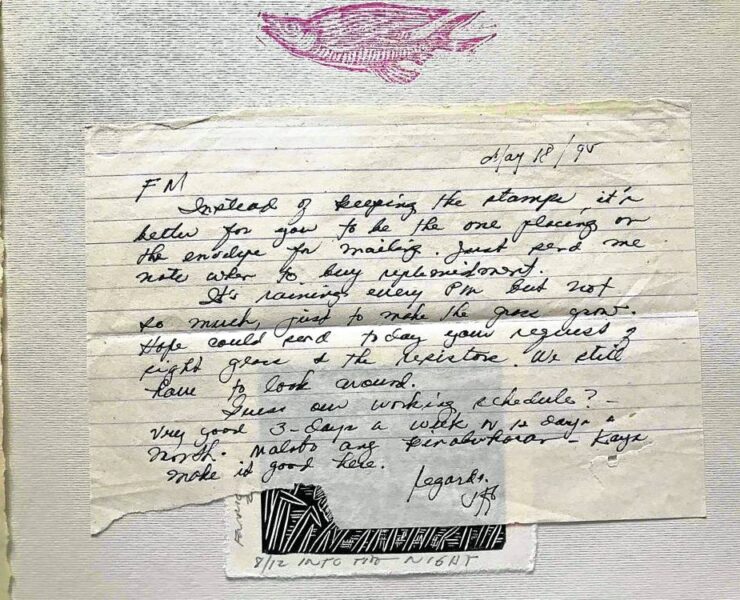 May 18/95
FM
Instead of keeping the stamps, it's
better for you to be the one placing on
the envelope for mailing. Just send me
note when to buy replenishment.
It's raining every PM but not
so much, just to make the grass grow.
Hope could send today your request of
sight glass & the resistors. We still
have to look around.
Guess our working schedule? -
very good 3-days a week or 12 days a
month. Malabo ang - Kaya
make it good here.
Regards.
8/12 INTO THE NIGHT